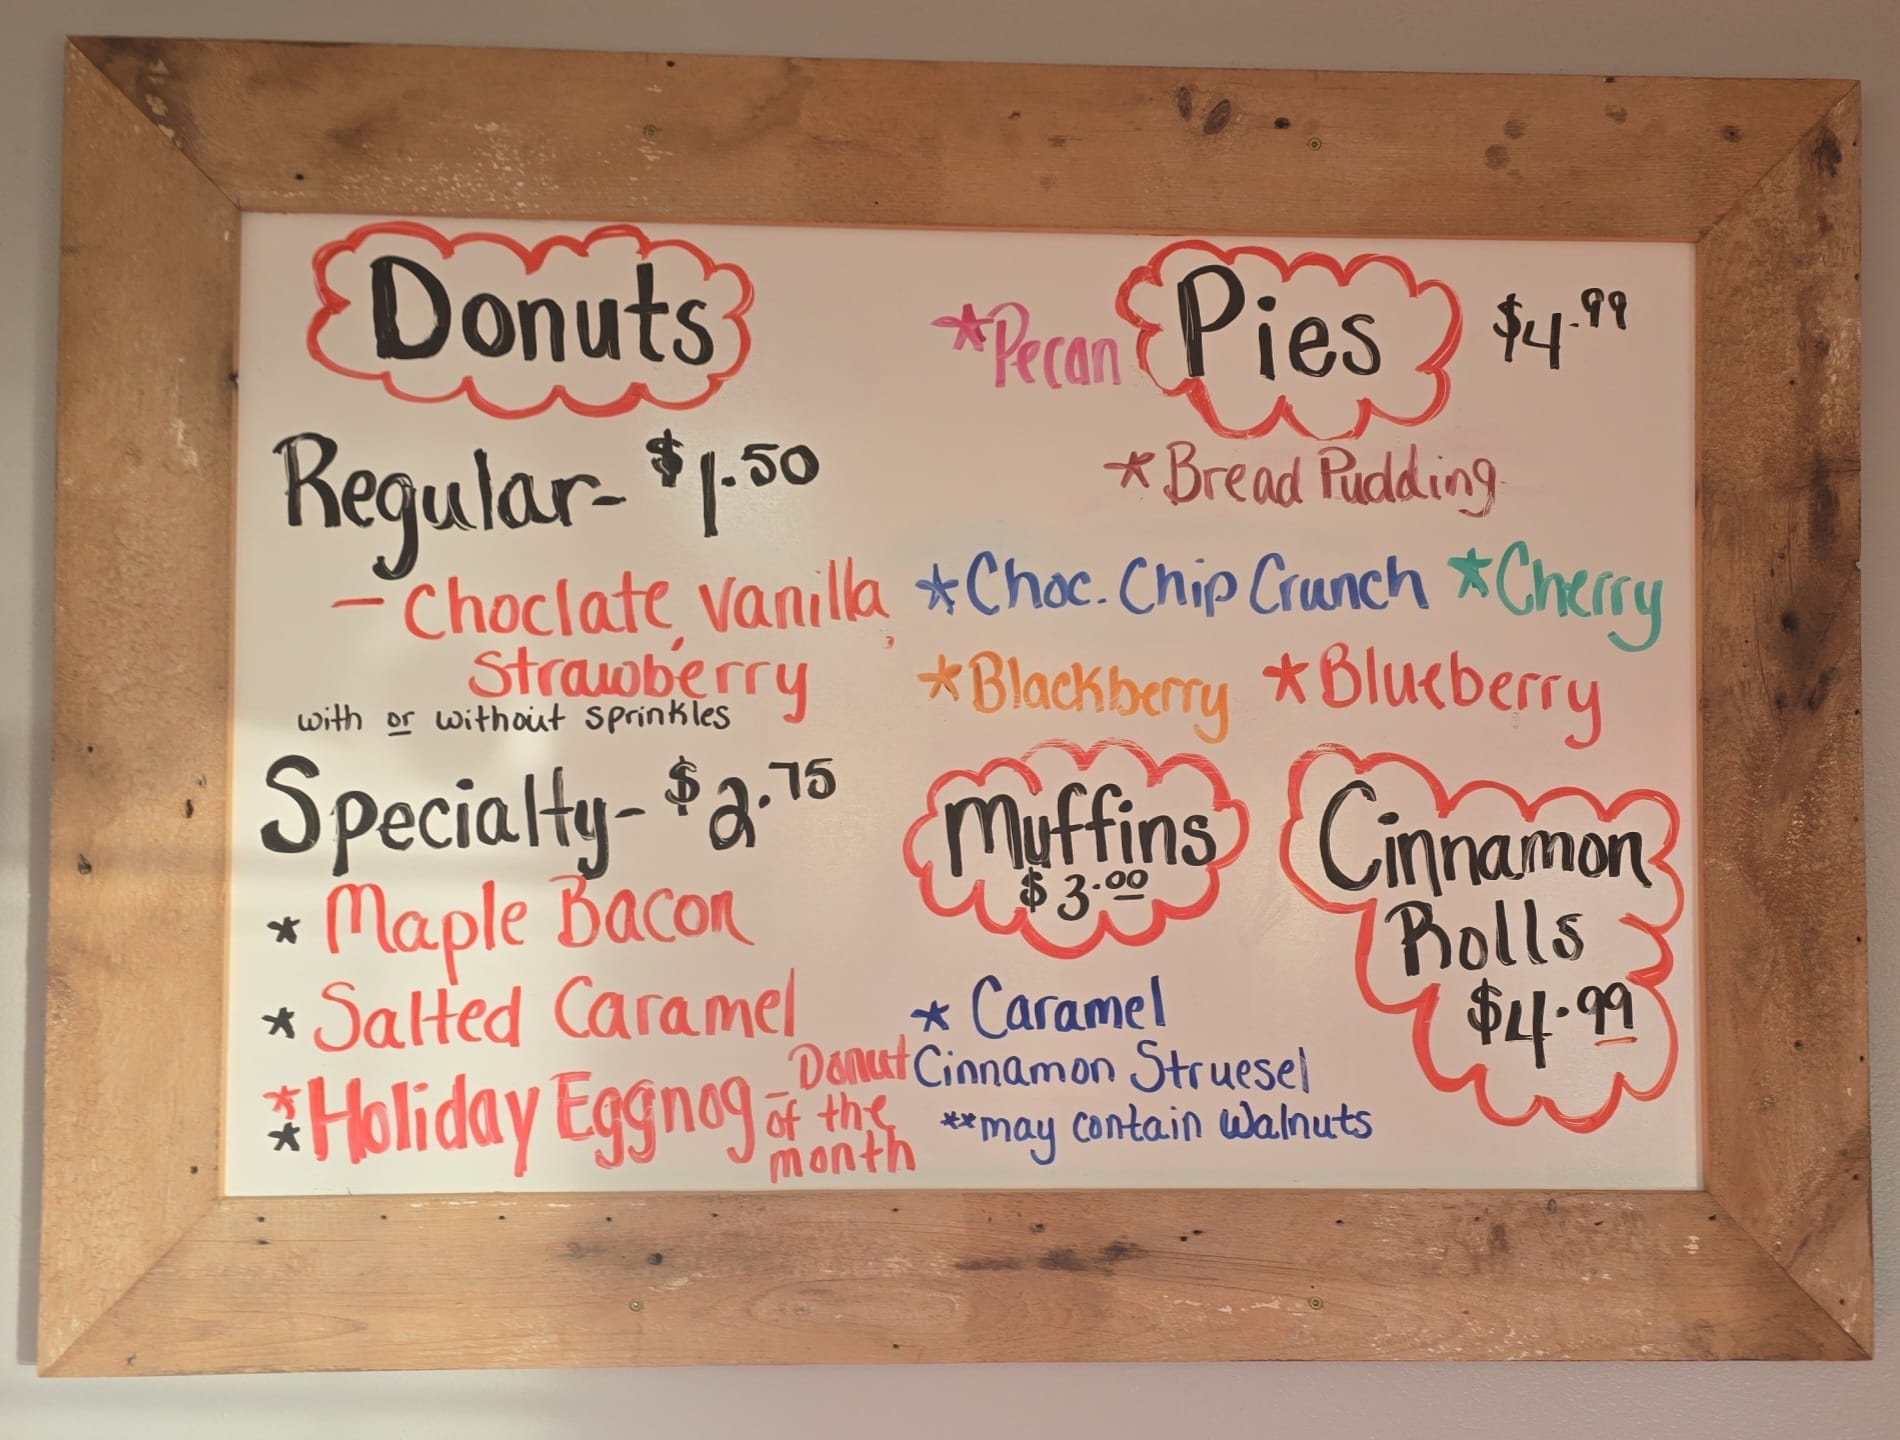 Donuts
Regular- $1.50
- Choclate, vanilla,
Strawberry
with or without sprinkles
Specialty- $2.75
* Maple Bacon
* Salted Caramel
** Holiday Eggnog - Donut
of the
month
Pies $4.99
*Pecan
*Bread Pudding
*Choc. Chip Crunch *Cherry
*Blackberry *Blueberry
Muffins
$3.00
* Caramel
Cinnamon Struesel
**may contain walnuts
Cinnamon
Rolls
$4.99